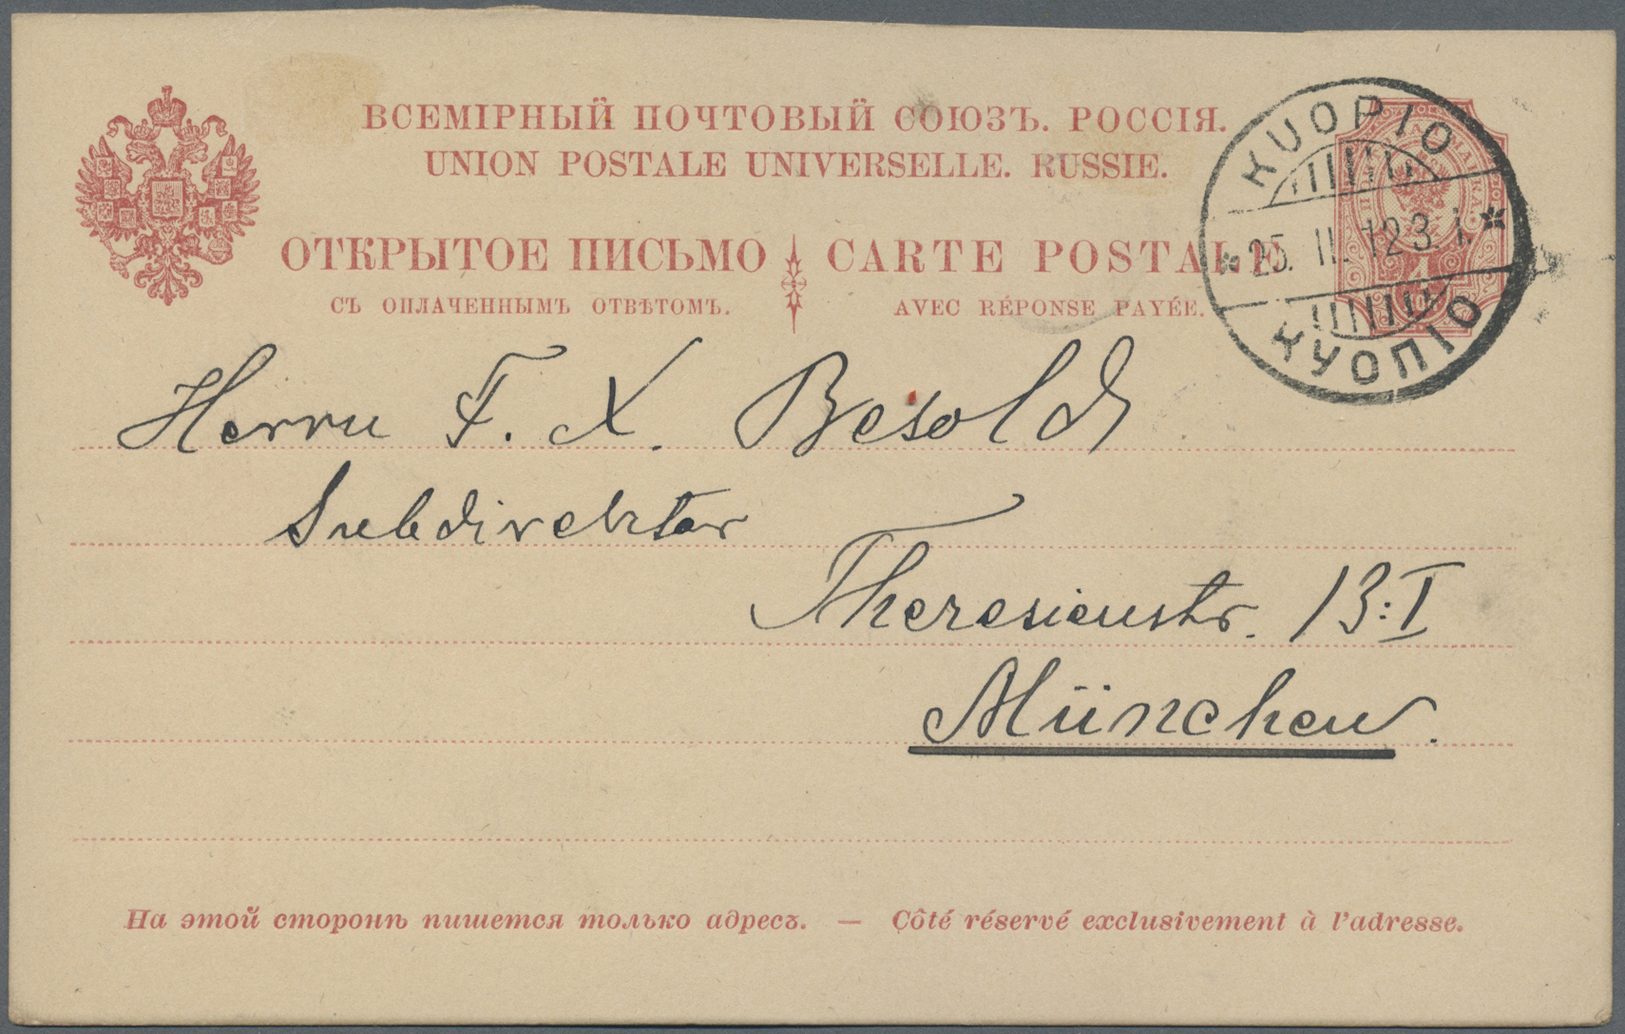 ВСЕМІРНЫЙ ПОЧТОВЫЙ СОЮЗЪ. РОССІЯ.
UNION POSTALE UNIVERSELLE. RUSSIE.
ОТКРЫТОЕ ПИСЬМО CARTE POSTALE
СЪ ОПЛАЧЕННЫМЪ ОТВѢТОМЪ. AVEC RÉPONSE PAYÉE.
KUOPIO
25. II. 12 3 i.
КУОПІО
Herrn F. X. Besold
Subdirektor
Theresienstr. 13:I
München.
На этой сторонѣ пишется только адресъ. — Côté réservé exclusivement à l'adresse.